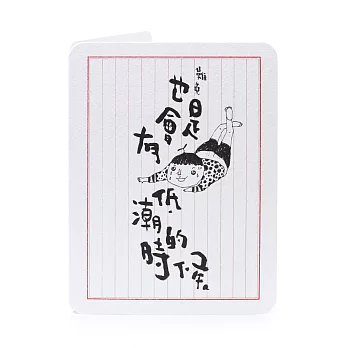 難免是
也會有
低潮
的時候